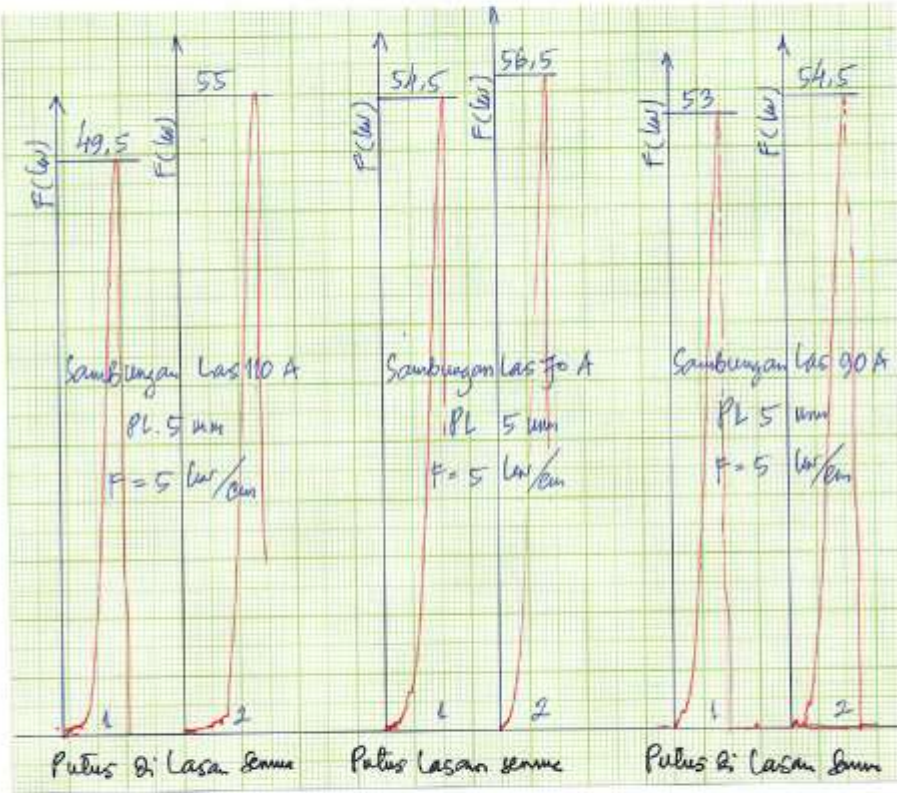 49,5
F(kN)
55
F(kN)
54,5
F(kN)
56,5
F(kN)
53
F(kN)
54,5
F(kN)
Sambungan Las 110 A
PL. 5 mm
F = 5 kN/cm
Sambungan Las 70 A
PL 5 mm
F = 5 kN/cm
Sambungan Las 90 A
PL 5 mm
F = 5 kN/cm
1
2
1
2
1
2
Putus di Lasan semua
Putus Lasan semua
Putus di Lasan semua